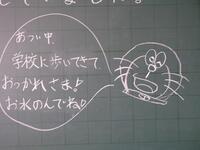 あつい中、
学校に歩いてきて
おつかれさま！
お水のんでね♡